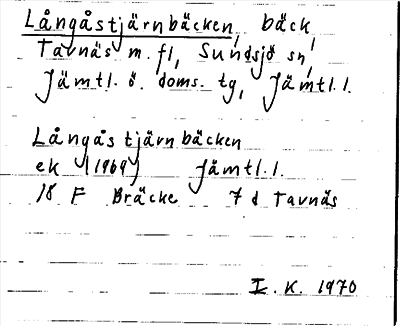 Långåstjärnbäcken, bäck
Tavnäs m.fl, Sundsjö sn,
Jämtl. ö. doms. tg, Jämtl. l.
Långåstjärnbäcken
ek (1969) Jämtl. l.
18 F Bräcke 7 d Tavnäs
I. K. 1970